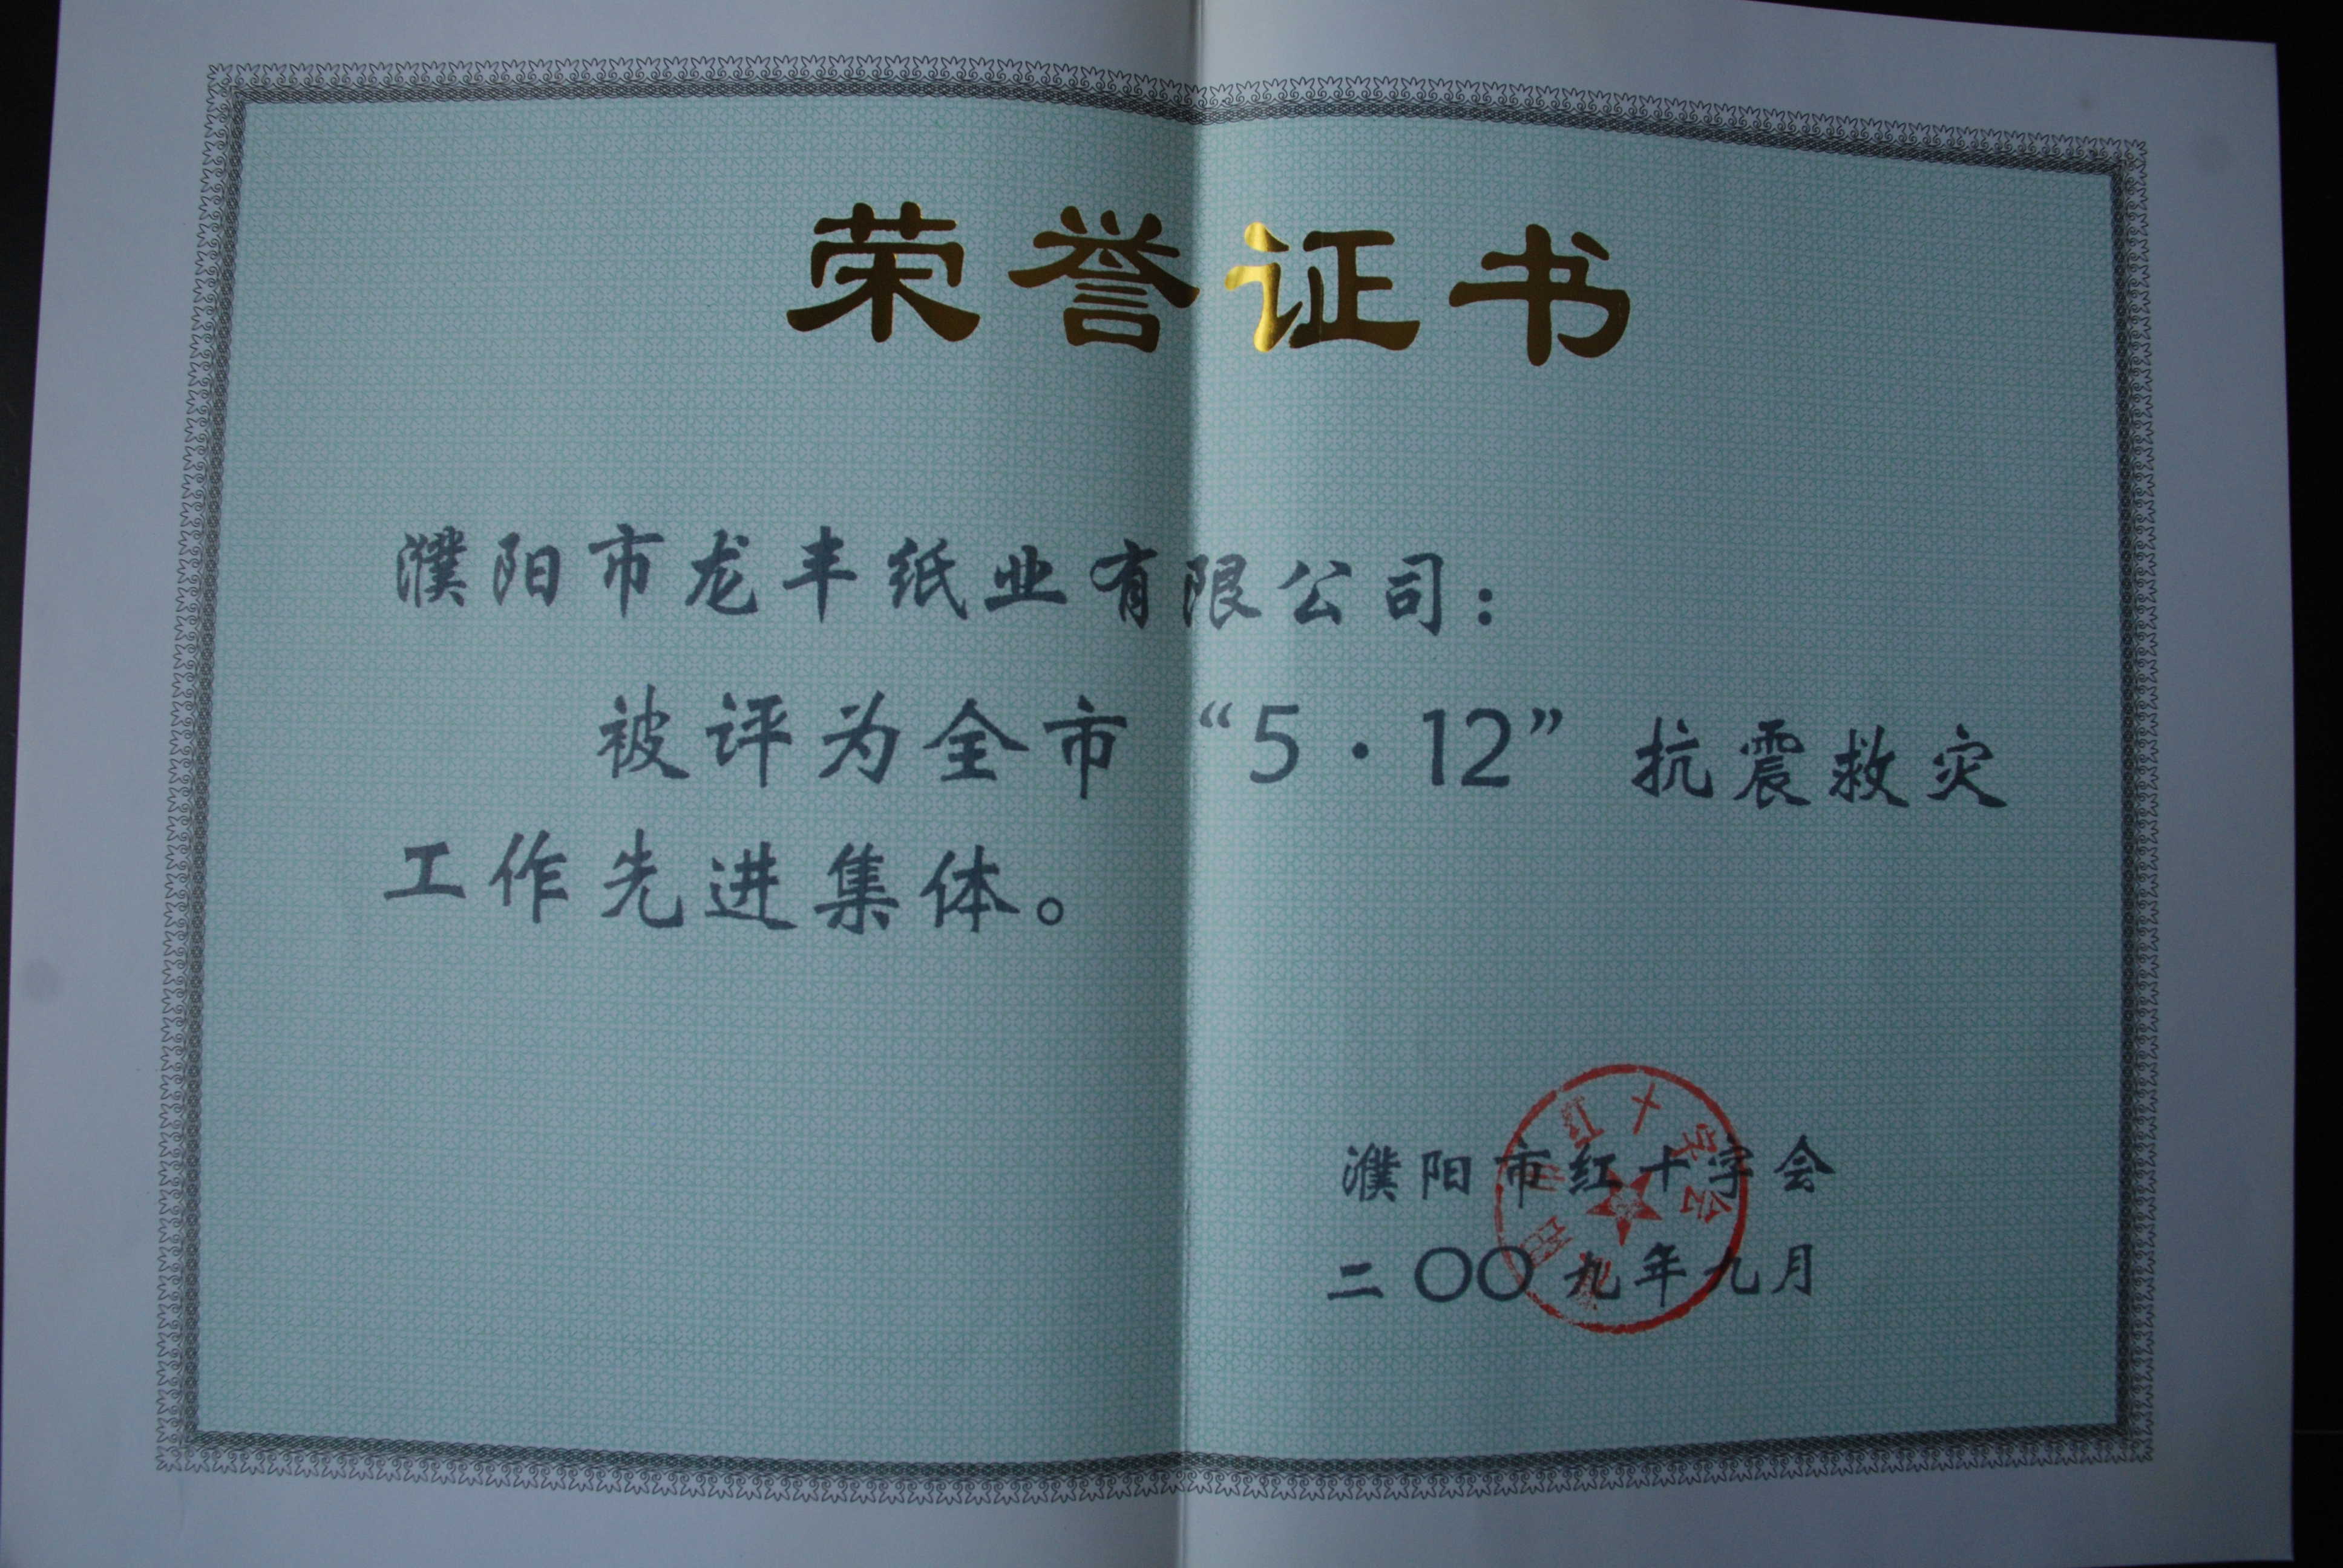 荣誉证书
濮阳市龙丰纸业有限公司：
被评为全市“5·12”抗震救灾
工作先进集体。
濮阳市红十字会
二〇〇九年九月
濮阳市红十字会